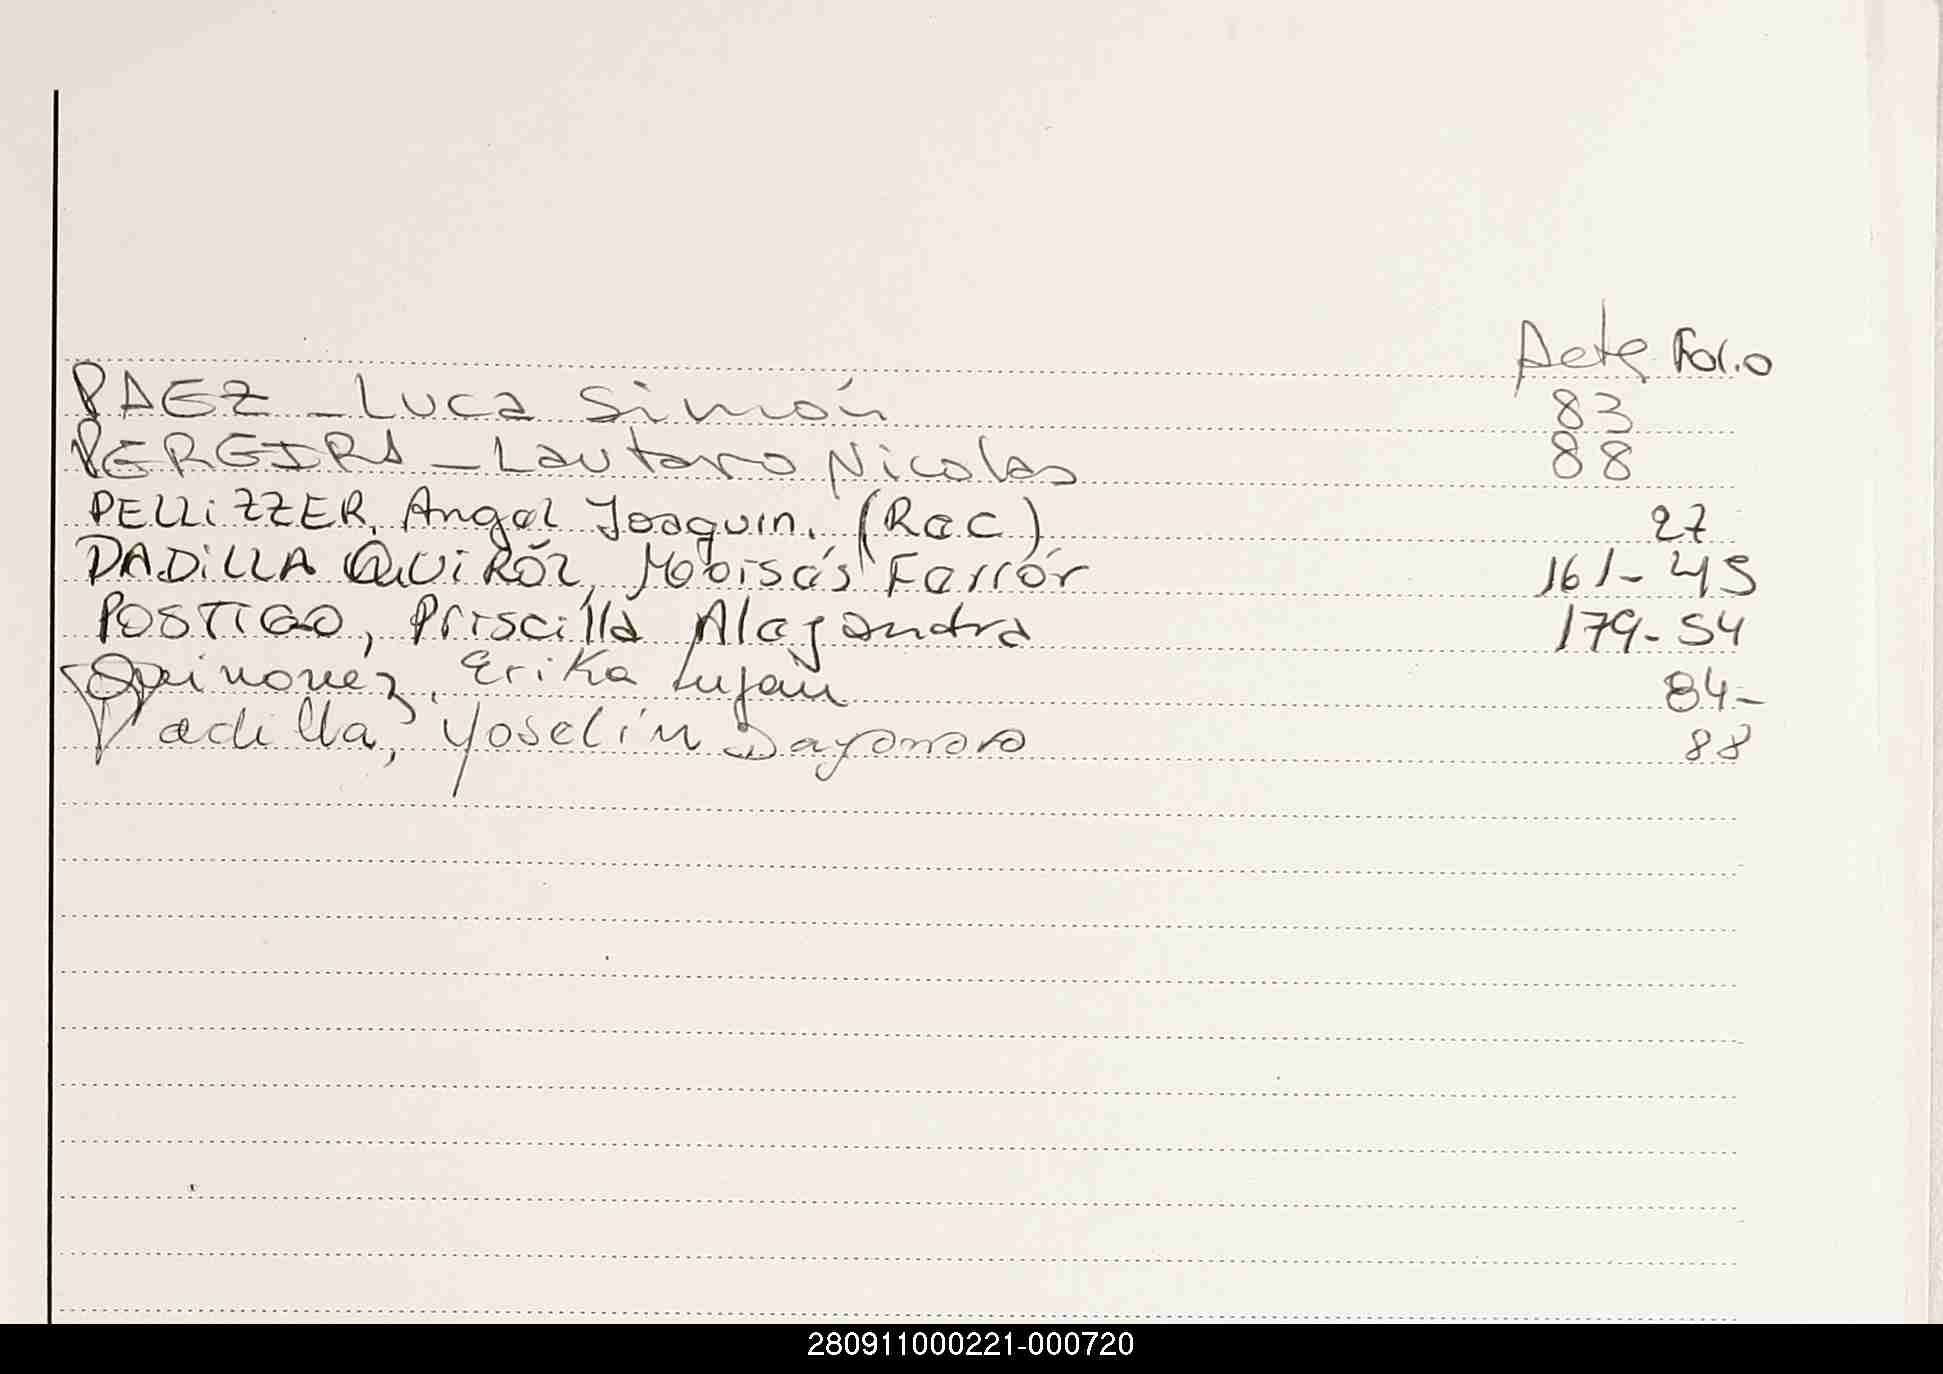 Acta Folio
PAEZ - Luca Simón 83
PEREIRA - Lautaro Nicolas 88
PELLIZZER, Angel Joaquin. (Rec) 27
PADILLA QUIROZ, Moisés 161-45
POSTIGO, Priscilla Alejandra 179-54
Quinonez, Erika Lujan 84-
Padilla, Yoselin 88
280911000221-000720